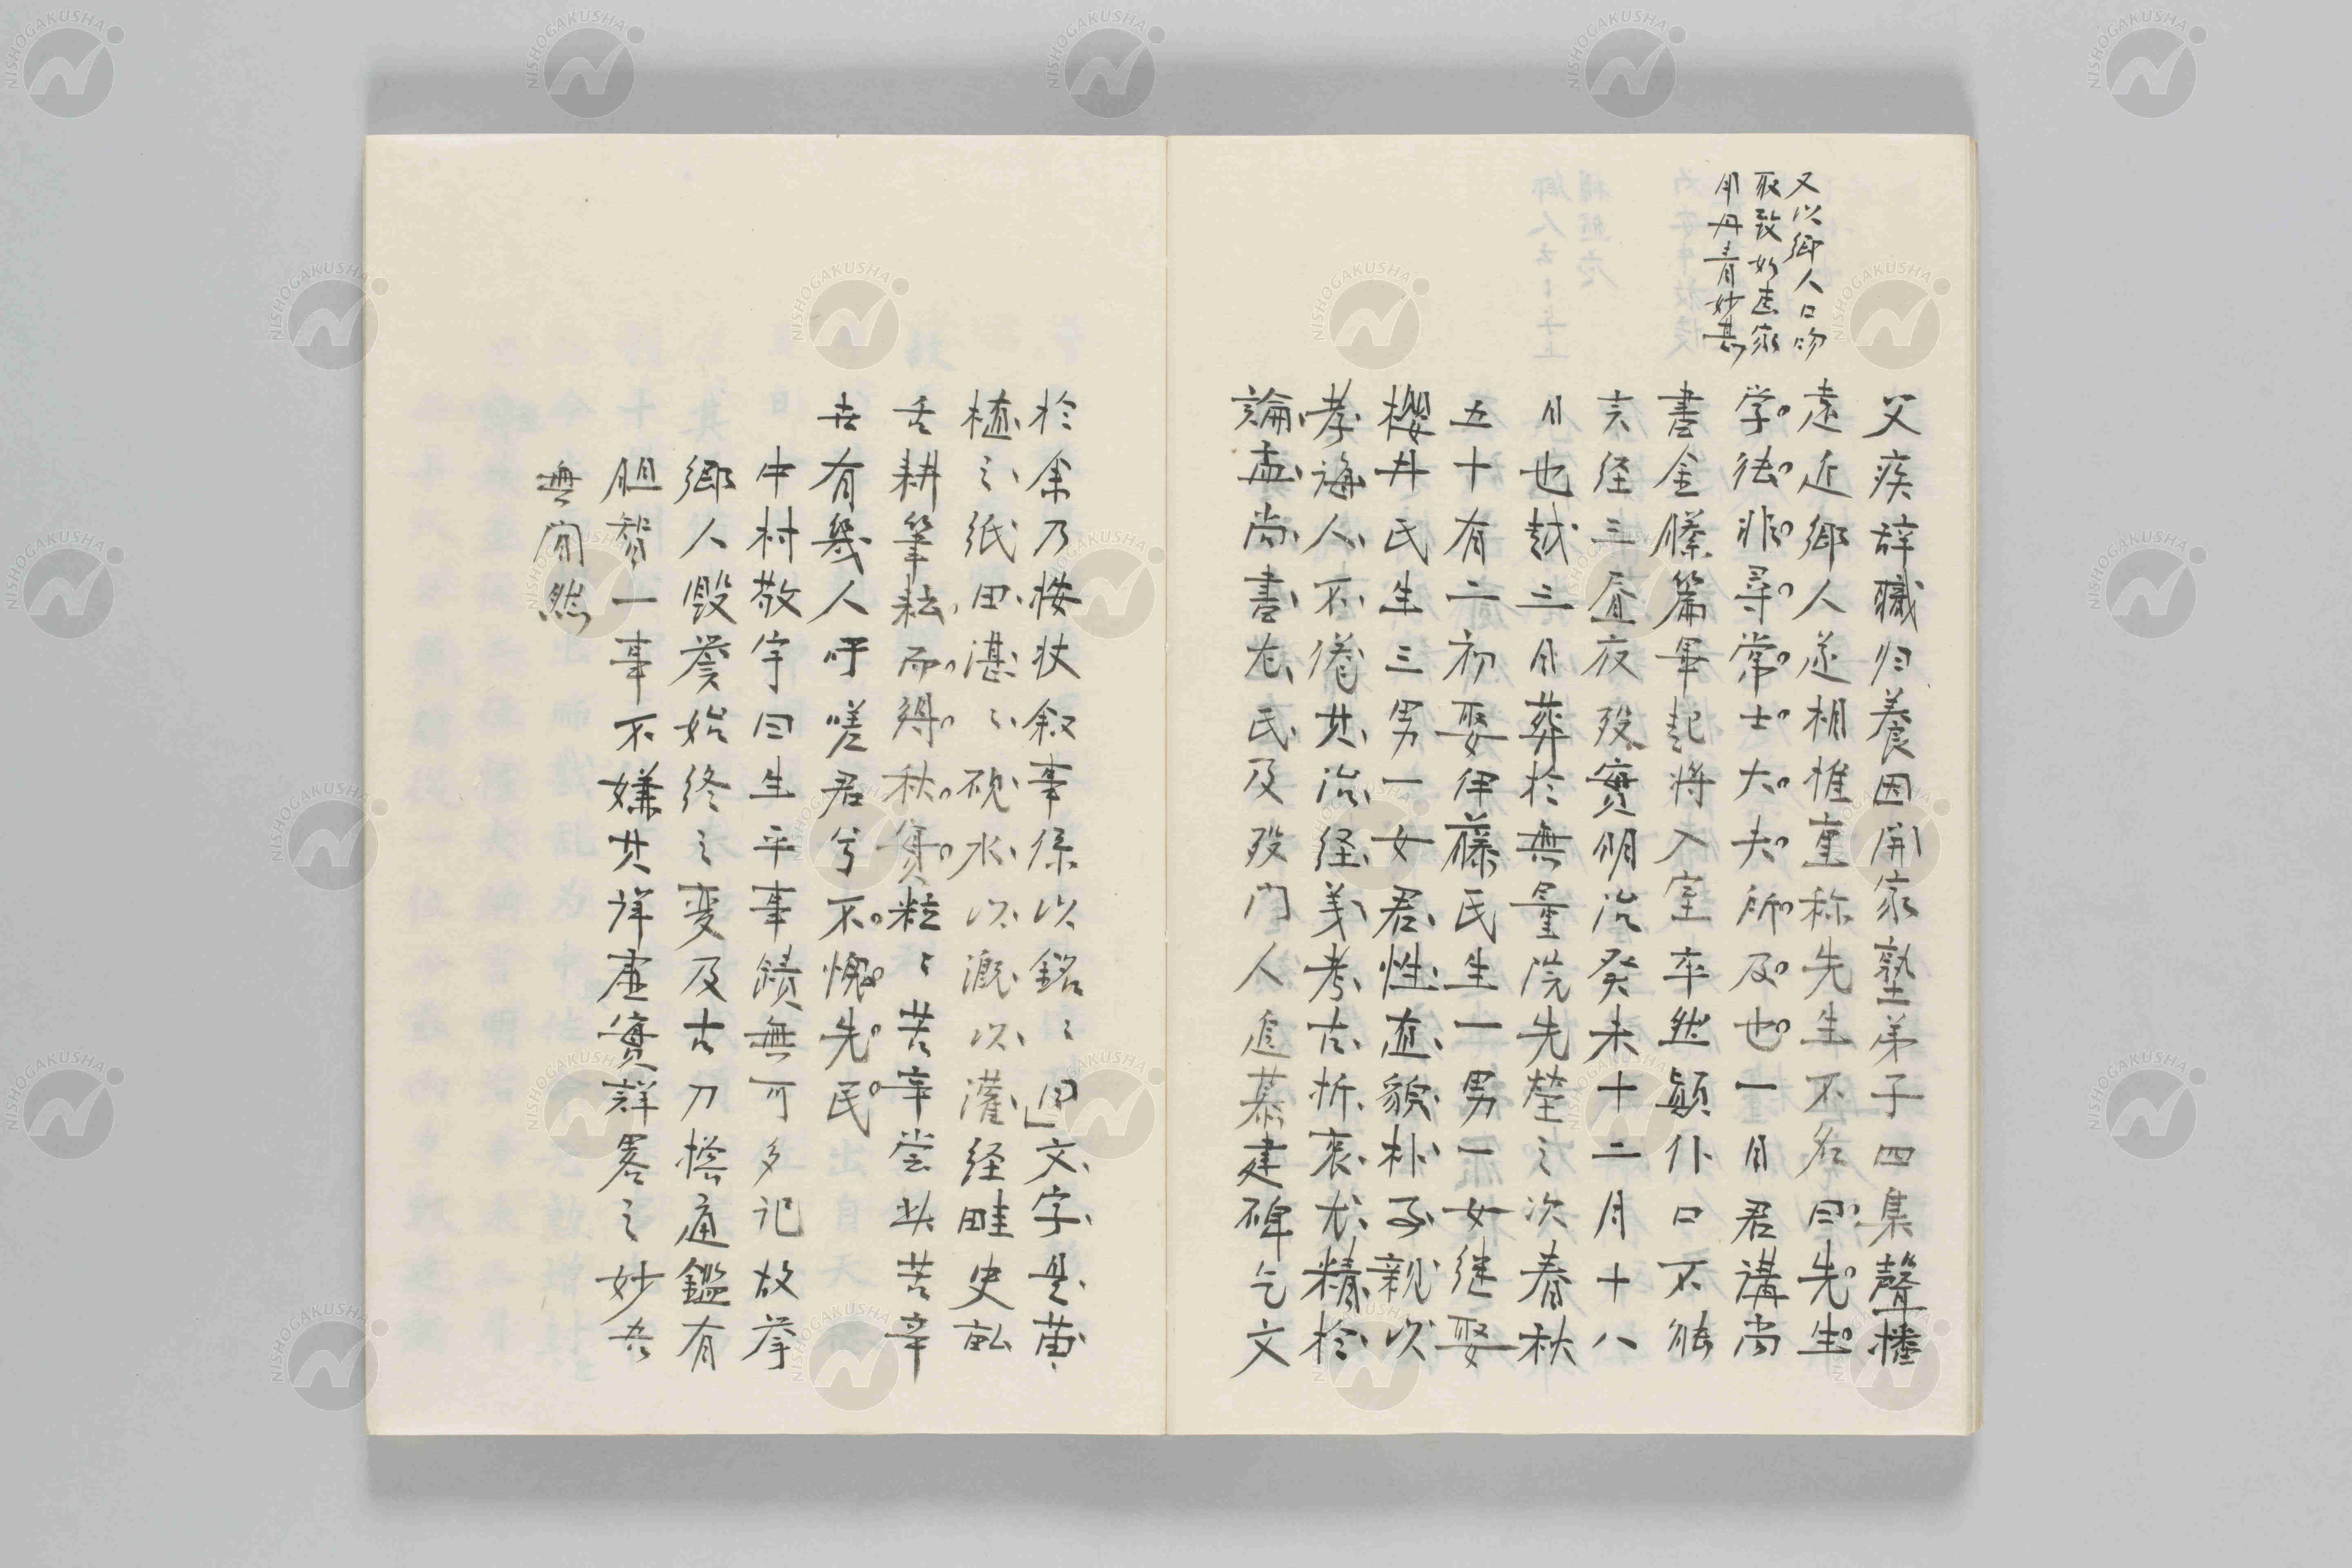 又以郷人口吻
収致如画家
用丹青妙甚
父疾辞職归養因開家塾弟子四集聲播
遠近郷人遂相惟重称先生不名曰先生
学徳非尋常士大夫所及也一月君講尚
書金縢篇畢起将入室卒然顛仆口不能
言経三昼夜歿實明治癸未十二月十八
日也越三日葬於無量院先塋之次春秋
五十有二初娶伊藤氏生一男一女継娶
櫻井氏生三男一女君性直貌朴孑親以
孝誨人不倦其治経義考古折衷尤精於
論孟尚書左氏及歿門人追慕建碑乞文
於余乃按状叙事係以銘々曰文字是苗
植之紙田湛々硯水以漑以灌経畦史畝
舌耕筆耘而得秋實粒々苦辛嘗此苦辛
世有幾人吁嗟君兮不愧先民
中村敬宇曰生平事蹟無可多記故挙
郷人毀誉始終之変及古刀掻痛鑑有
胆智一事不嫌其詳虚實詳畧之妙吾
無間然
NISHOGAKUSHA